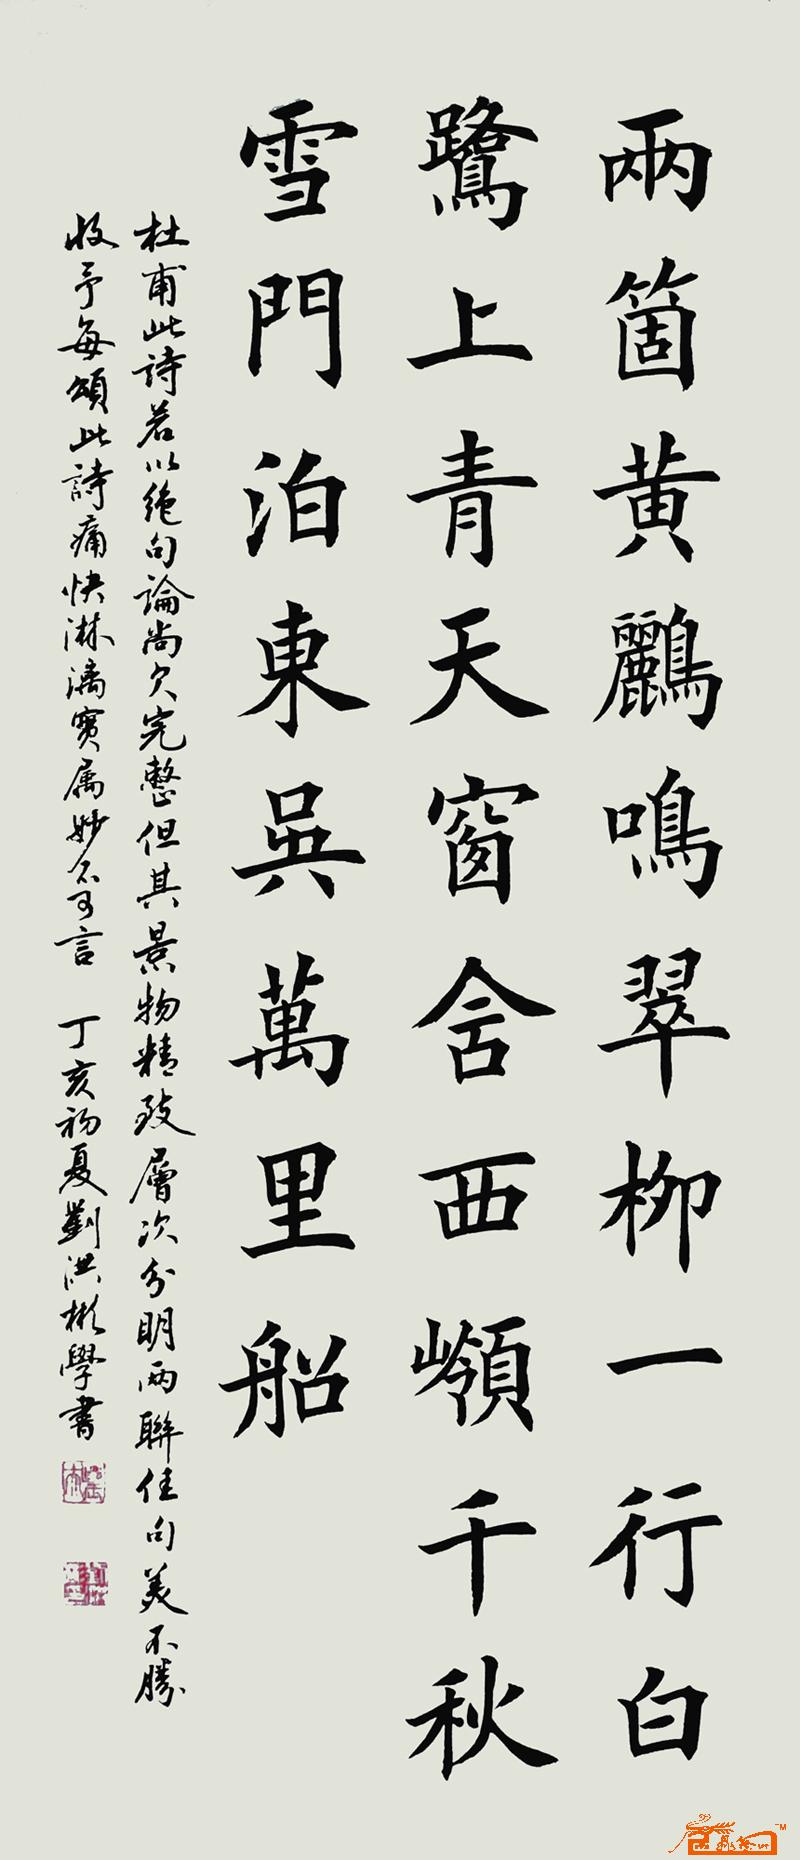 兩箇黄鸝鳴翠柳一行白
鷺上青天窗含西嶺千秋
雪門泊東吳萬里船
杜甫此詩若以絕句論尚欠完整但其景物精致層次分明兩聯佳句美不勝
收予每頌此詩痛快淋漓實属妙不可言 丁亥初夏劉洪彬學書